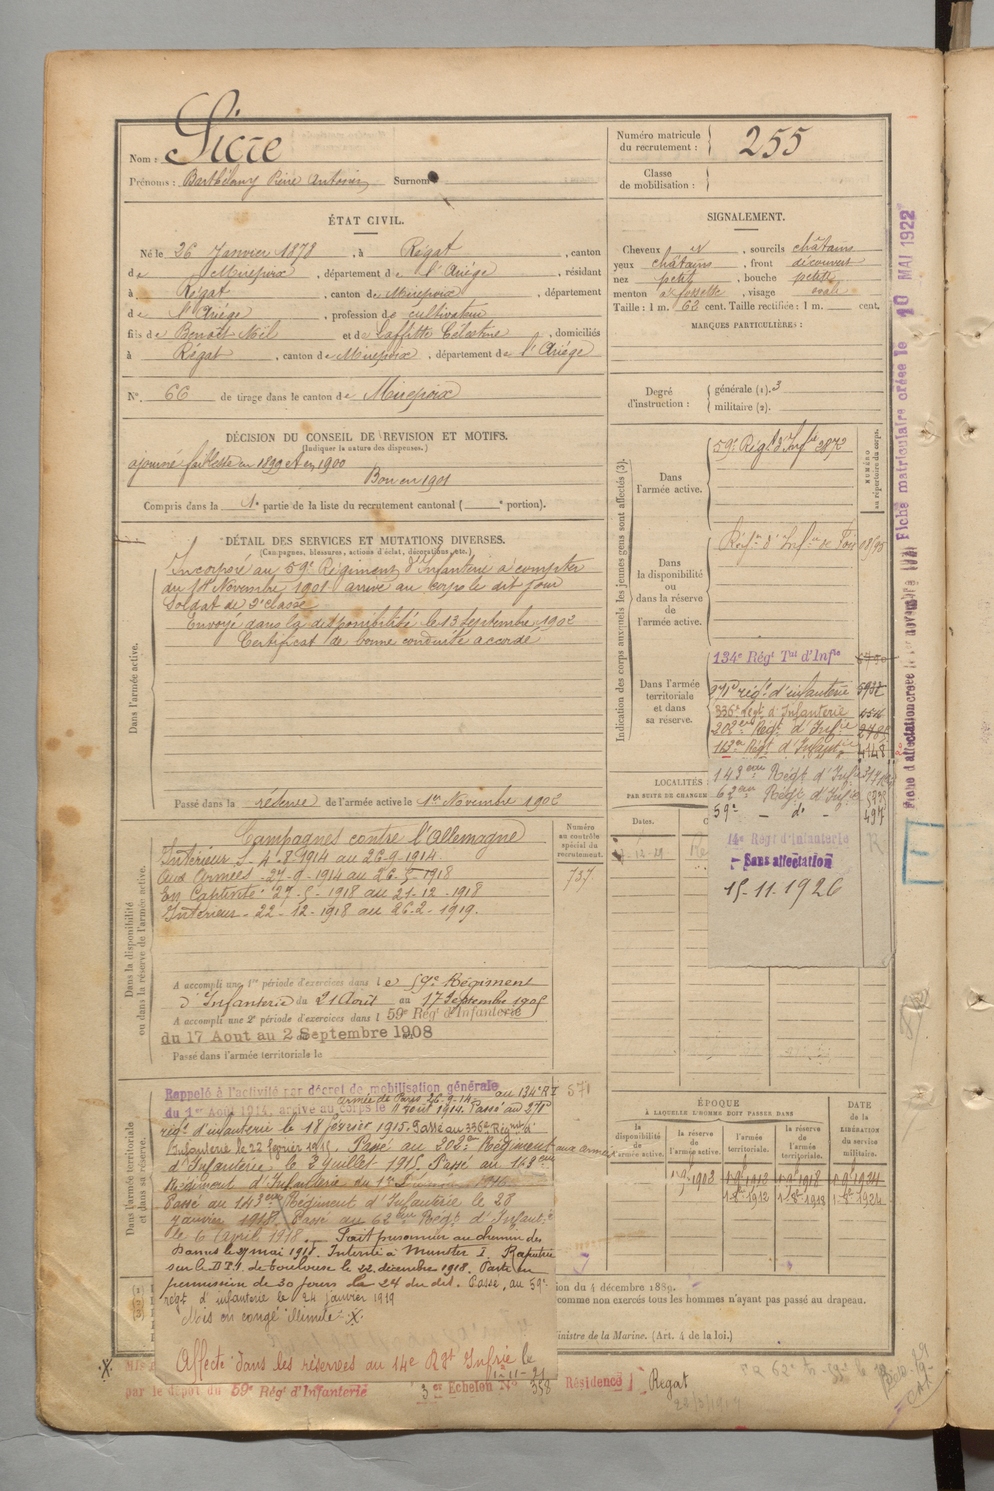 Nom : Sicre
Prénoms : Barthélemy Pierre Antonin Surnom
Numéro matricule du recrutement : 255
Classe de mobilisation :
ÉTAT CIVIL.
Né le 26 Janvier 1878, à Régat, canton
de Mirepoix, département de l'Ariège, résidant
à Régat, canton de Mirepoix, département
de l'Ariège, profession de cultivateur
fils de Benoît Mél et de Laffitte Célestine, domiciliés
à Régat, canton de Mirepoix, département de l'Ariège
N° 66 de tirage dans le canton de Mirepoix
SIGNALEMENT.
Cheveux N, sourcils châtains
yeux châtains, front découvert
nez petit, bouche petite
menton à fossette, visage ovale
Taille : 1 m. 63 cent. Taille rectifiée : 1 m. cent.
MARQUES PARTICULIÈRES :
Degré d'instruction : générale (1). 3
militaire (2).
DÉCISION DU CONSEIL DE REVISION ET MOTIFS.
(Indiquer la nature des dispenses.)
ajourné faiblesse en 1899 et en 1900
Bon en 1901
Compris dans la 1e partie de la liste du recrutement cantonal ( e portion).
DÉTAIL DES SERVICES ET MUTATIONS DIVERSES.
(Campagnes, blessures, actions d'éclat, décorations, etc.)
Dans l'armée active.
Incorporé au 59e Régiment d'Infanterie à compter
du 14 Novembre 1901 arrivé au corps le dit jour
Soldat de 2e classe
Envoyé dans la disponibilité le 13 Septembre 1902
Certificat de bonne conduite accordé
Passé dans la réserve de l'armée active le 1er Novembre 1902
Indication des corps auxquels les jeunes gens sont affectés (3).
NUMÉRO au répertoire du corps.
Dans l'armée active.
59e Régt d'Infie 2872
Dans la disponibilité ou dans la réserve de l'armée active.
Régt d'Infie de Foix
Dans l'armée territoriale et dans sa réserve.
134e Régt Tal d'Infie
271e régt d'infanterie
336e Régt d'Infanterie
202ème Régt d'Infie
113e Régt d'Infanterie 4448
143ème Régt d'Infie
62ème Régt d'Infie
59e - d° - 497
14e Régt d'Infanterie R
Sans affectation
15-11-1926
LOCALITÉS
PAR SUITE DE CHANGEM
Dates.
Dans la disponibilité ou dans la réserve de l'armée active.
Campagnes contre l'Allemagne
Intérieur - 4-8-1914 au 26-9-1914
Aux Armées - 27-9-1914 au 26-5-1918
En Captivité - 27-5-1918 au 21-12-1918
Intérieur - 22-12-1918 au 26-2-1919.
Numéro au contrôle spécial du recrutement.
737
A accompli une 1re période d'exercices dans le 59e Régiment
d'Infanterie du 21 Août au 17 Septembre 1905
A accompli une 2e période d'exercices dans l 59e Régt d'Infanterie
du 17 Aout au 2 Septembre 1908
Passé dans l'armée territoriale le
Dans l'armée territoriale et dans sa réserve.
Rappelé à l'activité par décret de mobilisation générale au 134e R I
armée de Paris 26-9-14
du 1er Aout 1914, arrivé au corps le 11 Août 1914. Passé au 271e
régt d'infanterie le 18 février 1915. Passé au 336e Régimt d'
Infanterie le 22 février 1915. Passé au 202e Régiment aux armées
d'Infanterie le 2 juillet 1915. Passé au 113ème
Régiment d'Infanterie du 1er
Passé au 143ème Régiment d'Infanterie le 28
janvier 1918. Passé au 62ème Régt d'Infantie
le 6 avril 1918. Fait prisonnier au chemin des
Dames le 27 mai 1918. Interné à Munster I. Rapatrié
sur le D.P.I. de Toulouse le 22 décembre 1918. Parti en
permission de 30 jours le 24 du dit. Passé au 59e
régt d'infanterie le 24 janvier 1919
Mis en congé illimité X.
Affecté dans les réserves au 14e Rgt Infrie le
571
ÉPOQUE
À LAQUELLE L'HOMME DOIT PASSER DANS
la disponibilité de l'armée active.
la réserve de l'armée active.
l'armée territoriale.
la réserve de l'armée territoriale.
DATE de la LIBÉRATION du service militaire.
1 9bre 1902
1 9bre 1912
1 9bre 1918
1 9bre 1924
1 8bre 1912
1 8bre 1918
1 8bre 1924
ion du 4 décembre 1889.
comme non exercés tous les hommes n'ayant pas passé au drapeau.
inistre de la Marine. (Art. 4 de la loi.)
.X. Mis
par le dépôt du 59e Régt d'Infanterie
3e Echelon N° 358 Résidence Régat
Fiche matriculaire créée le 10 MAI 1922